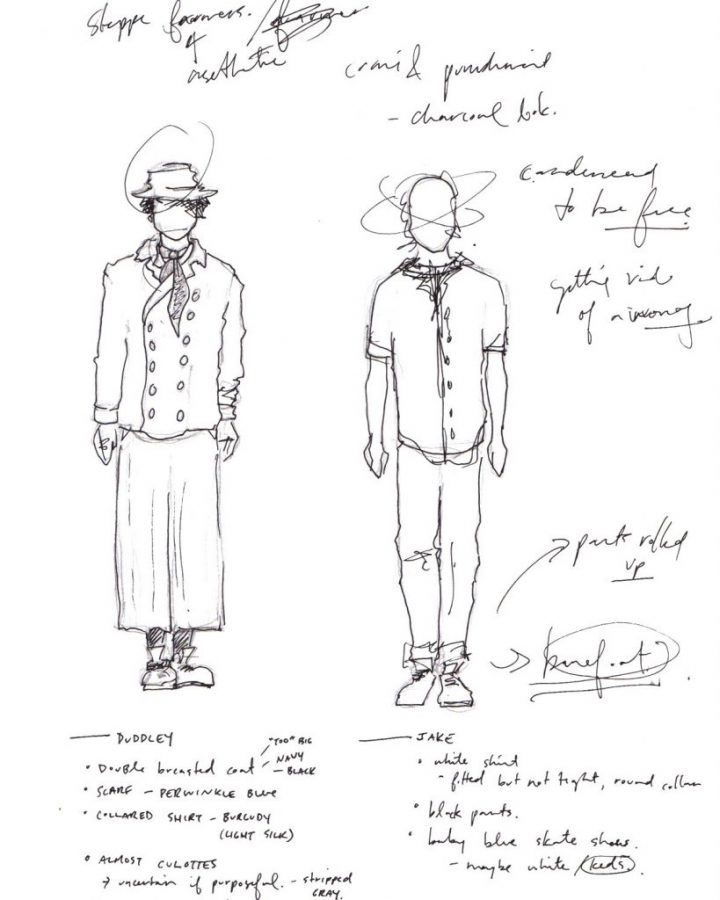 Steppe farmers. /
&
aesthetic
crime & punishment
- charcoal look.
condemned
to be free
getting rid
of
→ pants rolled
up
→ barefoot?
DUDDLEY
• DOUBLE breasted coat
"TOO" BIG
NAVY
- BLACK
• SCARF - PERWINKLE BLUE
• COLLARED SHIRT - BURGUDY
(LIGHT SILK)
• ALMOST CULOTTES
→ uncertain if purposeful. - stripped
GRAY.
JAKE
• white shirt
- fitted but not tight, round collar
• black pants.
• baby blue skate shoes.
- maybe white /keds.